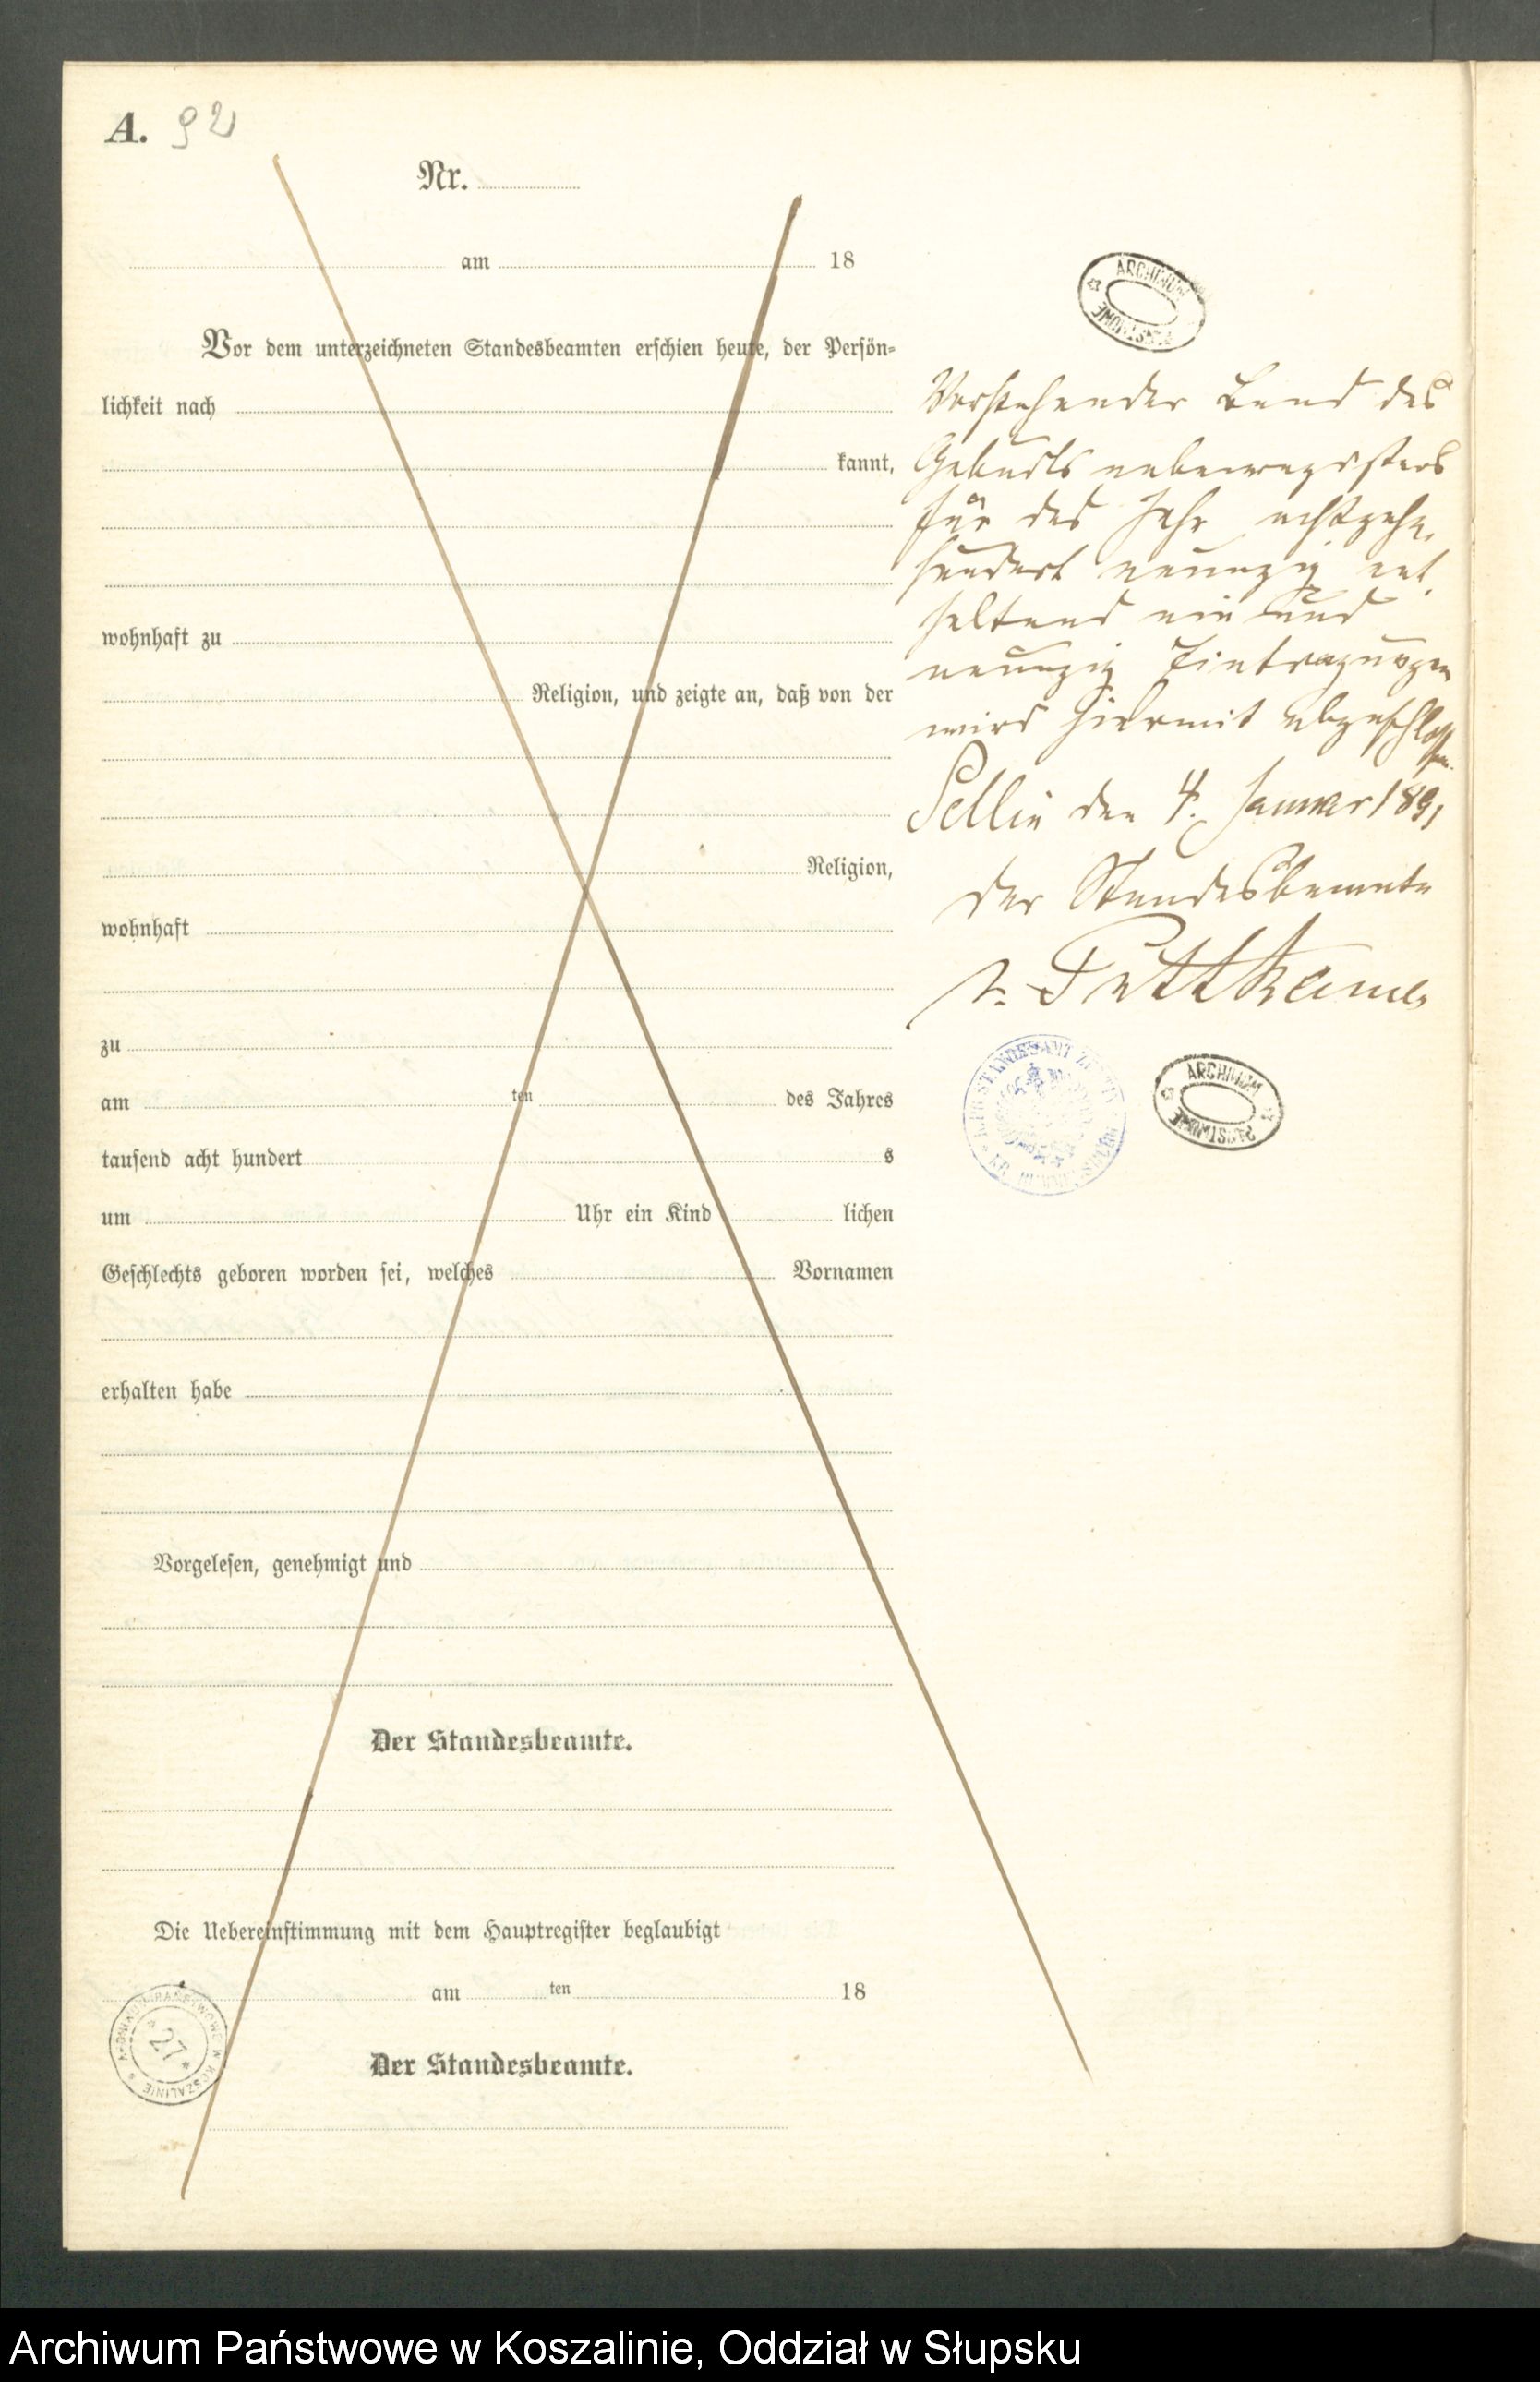 A. 92
Nr.
am 18
Vor dem unterzeichneten Standesbeamten erschien heute, der Persön-
lichkeit nach
kannt,
wohnhaft zu
Religion, und zeigte an, daß von der
Religion,
wohnhaft
zu
am ten des Jahres
tausend acht hundert s
um Uhr ein Kind lichen
Geschlechts geboren worden sei, welches Vornamen
erhalten habe
Vorgelesen, genehmigt und
Der Standesbeamte.
Die Uebereinstimmung mit dem Hauptregister beglaubigt
am ten 18
Der Standesbeamte.
ARCHIWUM PAŃSTWOWE W KOSZALINIE
27
ARCHIWUM
PAŃSTWOWE
Vorstehender Band des
Geburtsnebenregisters
für das Jahr achtzehn
hundert neunzig ent
haltend ein und
neunzig Eintragungen
wird hiermit abgeschlossen.
Sellin den 4. Januar 1891
Der Standesbeamte
v. Puttkamer
STANDESAMT
ARCHIWUM
PAŃSTWOWE
Archiwum Państwowe w Koszalinie, Oddział w Słupsku